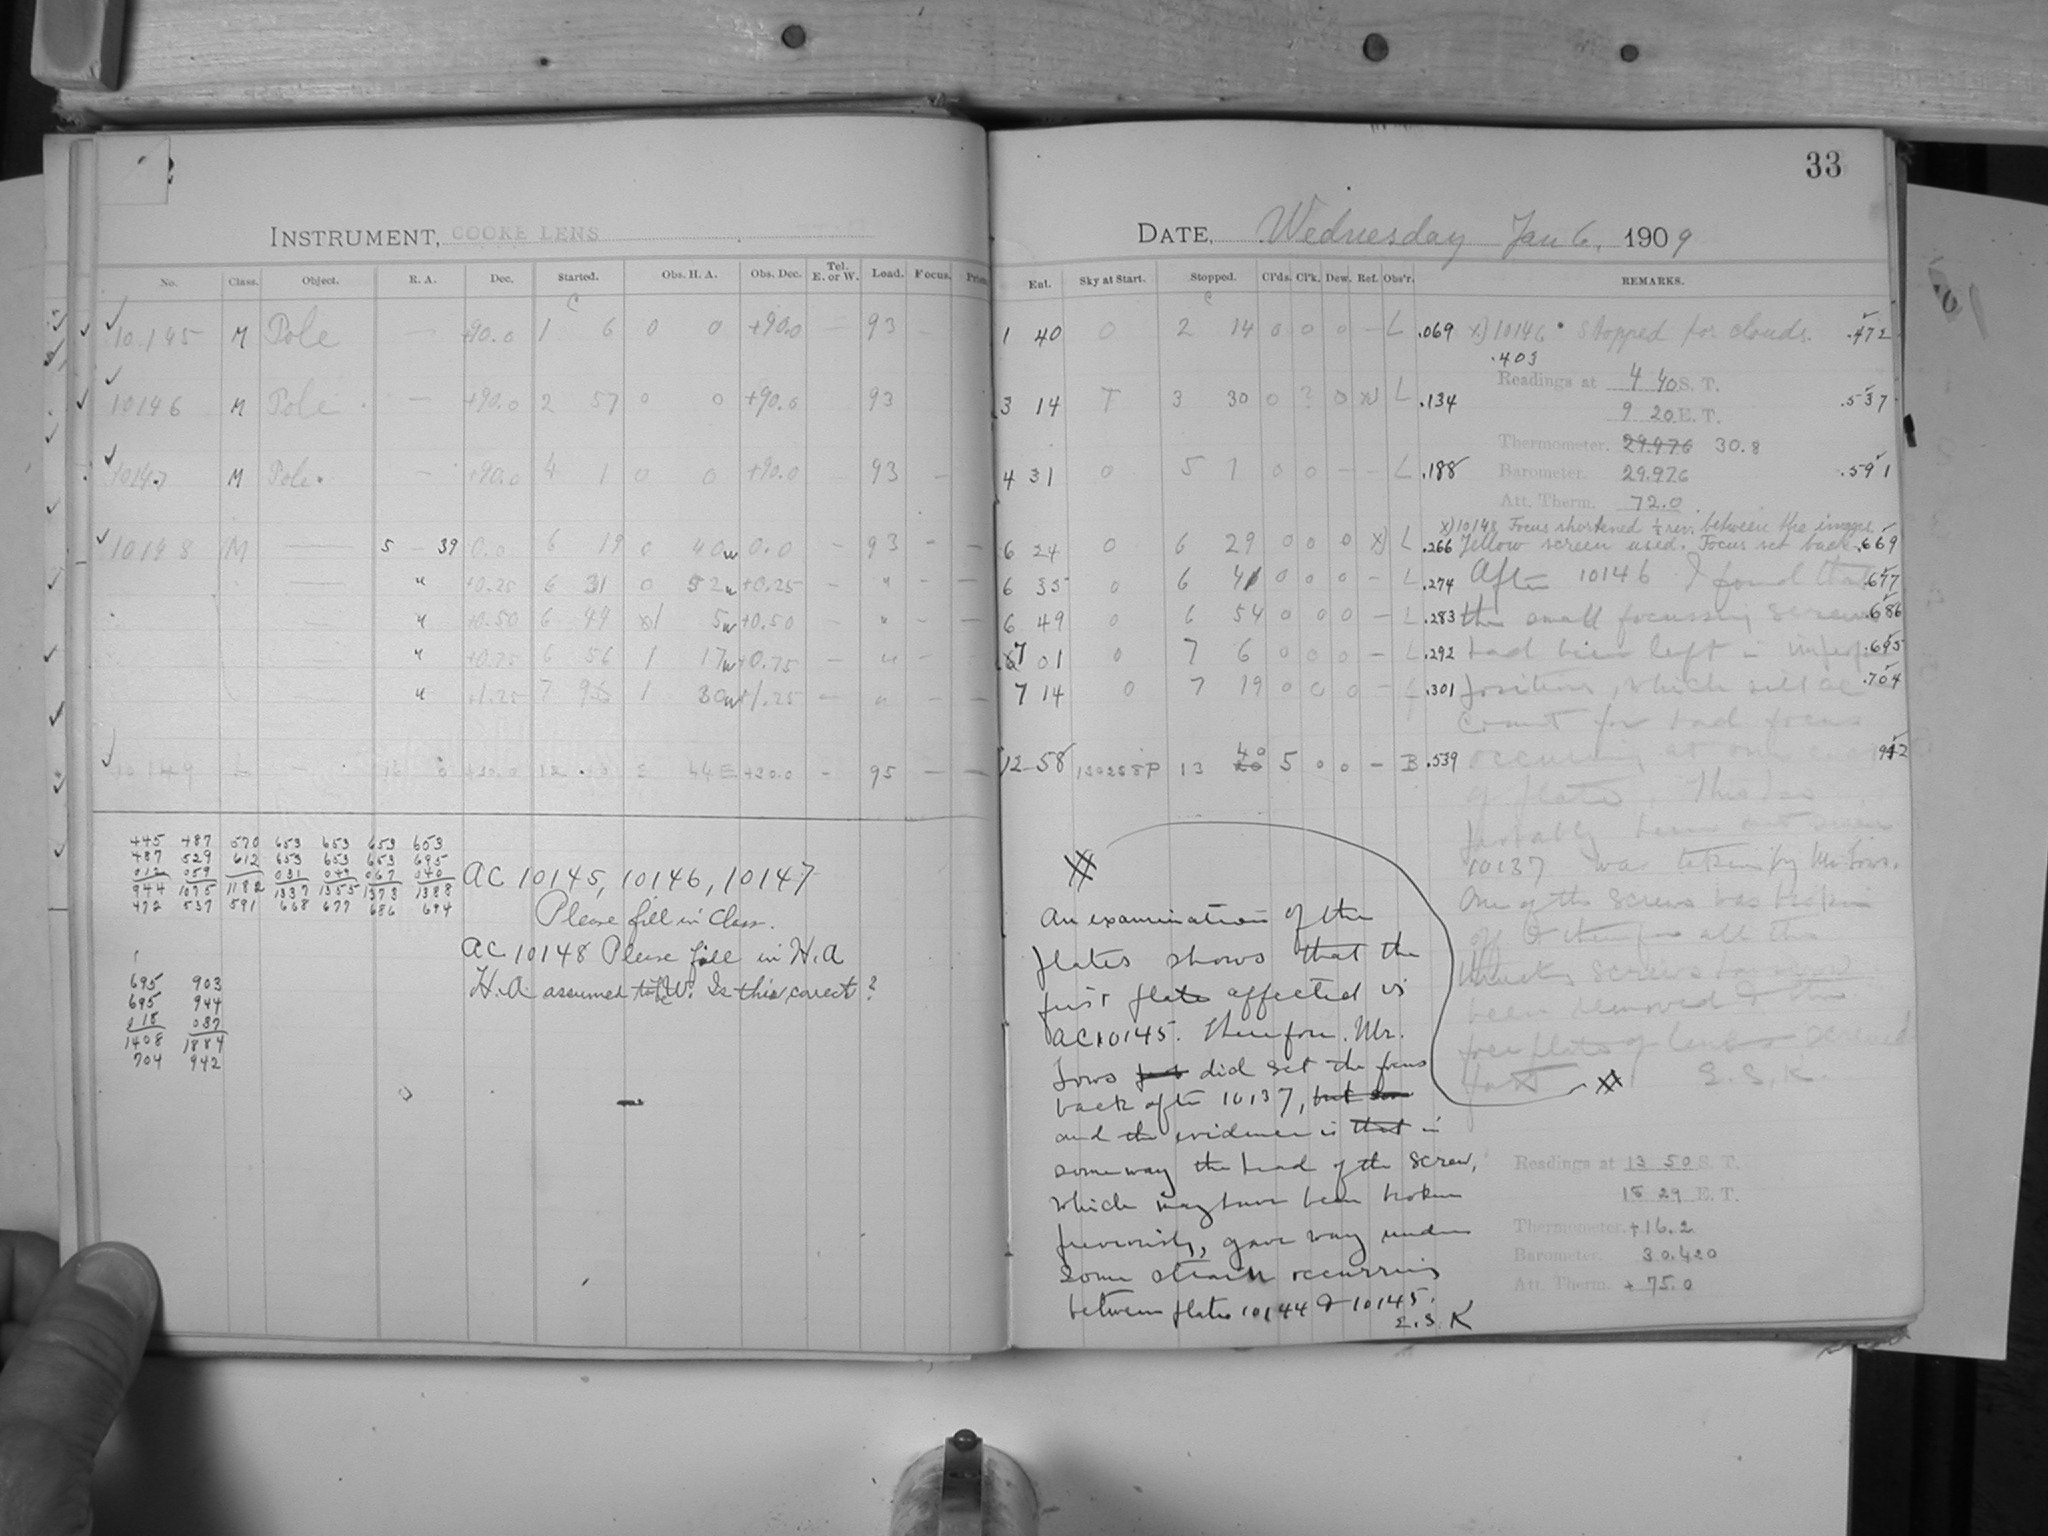 INSTRUMENT, COOKE LENS
No. Class. Object. R. A. Dec. Started. Obs. H. A. Obs. Dec. Tel. E. or W. Load. Focus.
10145 M Pole — +90.0 1 6 0 0 +90.0 — 93 -
10146 M Pole — +90.0 2 57 0 0 +90.0 93
10147 M Pole — +90.0 4 1 0 0 +90.0 93 -
10148 M — 5 - 39 0.0 6 19 0 40w 0.0 - 93 - -
— " +0.25 6 31 0 52w +0.25 - " - -
— " +0.50 6 44 1 5w +0.50 - " - -
— " +0.75 6 56 1 17w +0.75 - " - -
" +1.25 7 1 30w +1.25 - " - -
10149 L - +30.0 12 44 E +30.0 - 95 - -
445 487 570 653 653 653 653
487 529 612 653 653 653 695
012 059 031 049 067 040
944 1075 1182 1337 1355 1373 1388
472 537 591 668 677 686 694
AC 10145, 10146, 10147
Please fill in Class.
AC 10148 Please fill in H.A
H.A. assumed to be W. Is this correct?
695 903
695 944
018 037
1408 1884
704 942
33
DATE, Wednesday Jan 6, 1909
Ent. Sky at Start. Stopped. Cl'ds. Cl'k. Dew. Ref. Obs'r. REMARKS.
1 40 0 2 14 0 0 0 - L .069 x) 10146 Stopped for clouds. .472
.403
3 14 T 3 30 0 ? 0 x) L .134 .537
4 31 0 5 1 0 0 - - L .188 .591
Readings at 4 40 S. T.
9 20 E. T.
Thermometer. 29.976 30.8
Barometer. 29.976
Att. Therm. 72.0
x) 10148 Focus shortened ½ rev. between the images
6 24 0 6 29 0 0 0 x) L .266 Yellow screen used. Focus set back. .669
6 35 0 6 41 0 0 0 - L .274 After 10146 I found that .677
6 49 0 6 54 0 0 0 - L .283 the small focussing screws .686
7 01 0 7 6 0 0 0 - L .292 had been left in .695
7 14 0 7 19 0 0 0 - L .301 position, which will ac .704
count for bad focus
12 58 13 40 5 0 0 - B .539 occurring at one 942
of plates. This has
probably been
10137 was taken by Mr. Fows.
One of the screws was broken
off & therefore all the
screws have now
been removed & the
E. S. K.
An examination of the
plates shows that the
first plate affected is
AC 10145. Therefore Mr.
Fows did set the focus
back after 10137,
and the evidence is that in
some way the head of the screw,
which may have been broken
previously, gave way under
some strain occurring
between plates 10144 & 10145.
E. S. K
Readings at 13 50 S. T.
18 29 E. T.
Thermometer. +16.2
Barometer. 30.420
Att. Therm. + 75.0